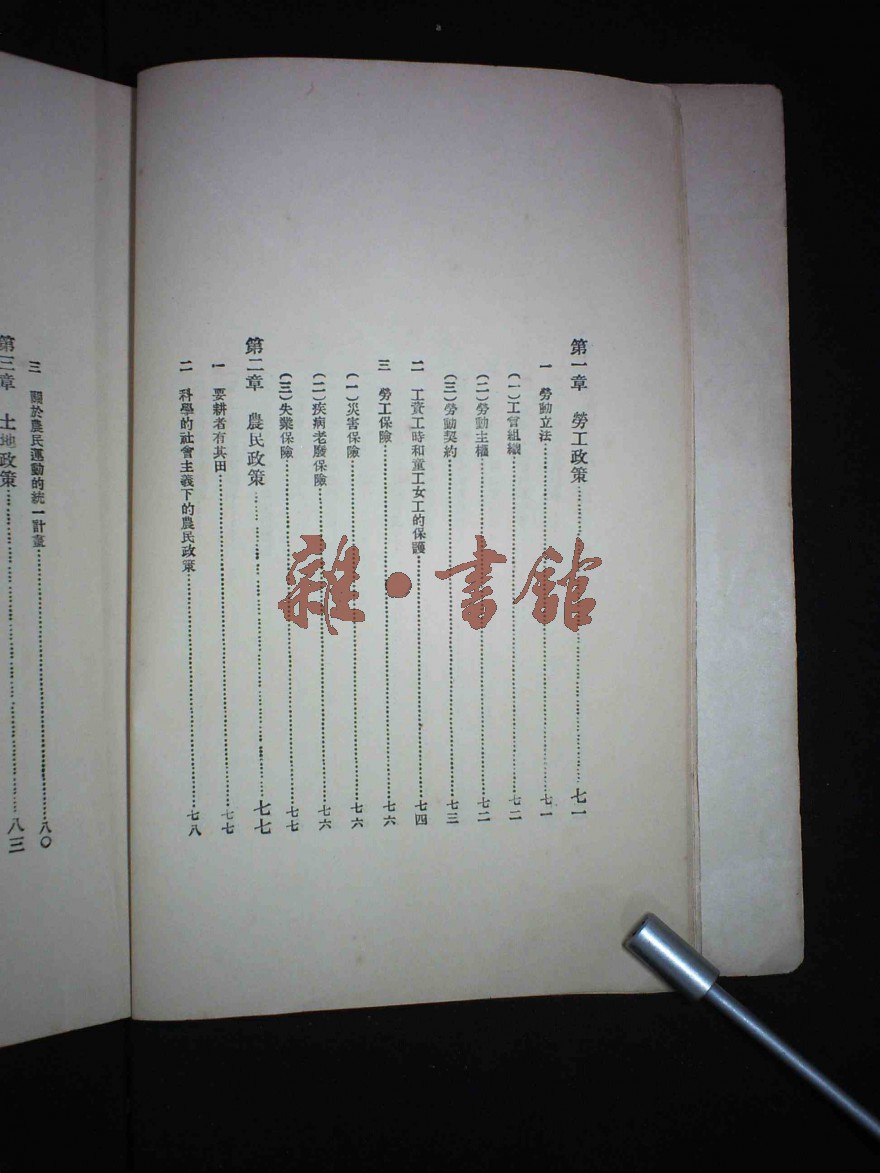 第一章　勞工政策……七一
一　勞動立法……七一
(一)工會組織……七二
(二)勞動主權……七二
(三)勞動契約……七三
二　工資工時和童工女工的保護……七四
三　勞工保險……七六
(一)災害保險……七六
(二)疾病老廢保險……七六
(三)失業保險……七七
第二章　農民政策……七七
一　要耕者有其田……七七
二　科學的社會主義下的農民政策……七八
三　關於農民運動的統一計畫……八〇
第三章　土地政策……八三
雜·書館